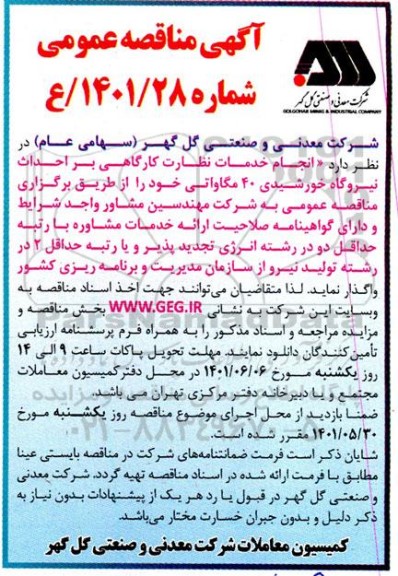 آگهی مناقصه عمومی
شماره ۱۴۰۱/۲۸/ع
شرکت معدنی و صنعتی گل گهر
GOLGOHAR MINING & INDUSTRIAL COMPANY
شرکت معدنی و صنعتی گل گهر (سهامی عام) در
نظر دارد « انجام خدمات نظارت کارگاهی بر احداث
نیروگاه خورشیدی ۴۰ مگاواتی خود را از طریق برگزاری
مناقصه عمومی به شرکت مهندسین مشاور واجد شرایط
و دارای گواهینامه صلاحیت ارائه خدمات مشاوره با رتبه
حداقل دو در رشته انرژی تجدید پذیر و یا رتبه حداقل ۲ در
رشته تولید نیرو از سازمان مدیریت و برنامه ریزی کشور
واگذار نماید. لذا متقاضیان می‌توانند جهت اخذ اسناد مناقصه به
وبسایت این شرکت به نشانی WWW.GEG.IR بخش مناقصه و
مزایده مراجعه و اسناد مذکور را به همراه فرم پرسشنامه ارزیابی
تأمین‌کنندگان دانلود نمایند. مهلت تحویل پاکات ساعت ۹ الی ۱۴
روز یکشنبه مورخ ۱۴۰۱/۰۶/۰۶ در محل دفتر کمیسیون معاملات
مجتمع و یا دبیرخانه دفتر مرکزی تهران می باشد.
ضمنا بازدید از محل اجرای موضوع مناقصه روز یکشنبه مورخ
۱۴۰۱/۰۵/۳۰ مقرر شده است.
شایان ذکر است فرمت ضمانتنامه‌های شرکت در مناقصه بایستی عینا
مطابق با فرمت ارائه شده در اسناد مناقصه تهیه گردد. شرکت معدنی
و صنعتی گل گهر در قبول یا رد هر یک از پیشنهادات بدون نیاز به
ذکر دلیل و بدون جبران خسارت مختار می‌باشد.
کمیسیون معاملات شرکت معدنی و صنعتی گل گهر